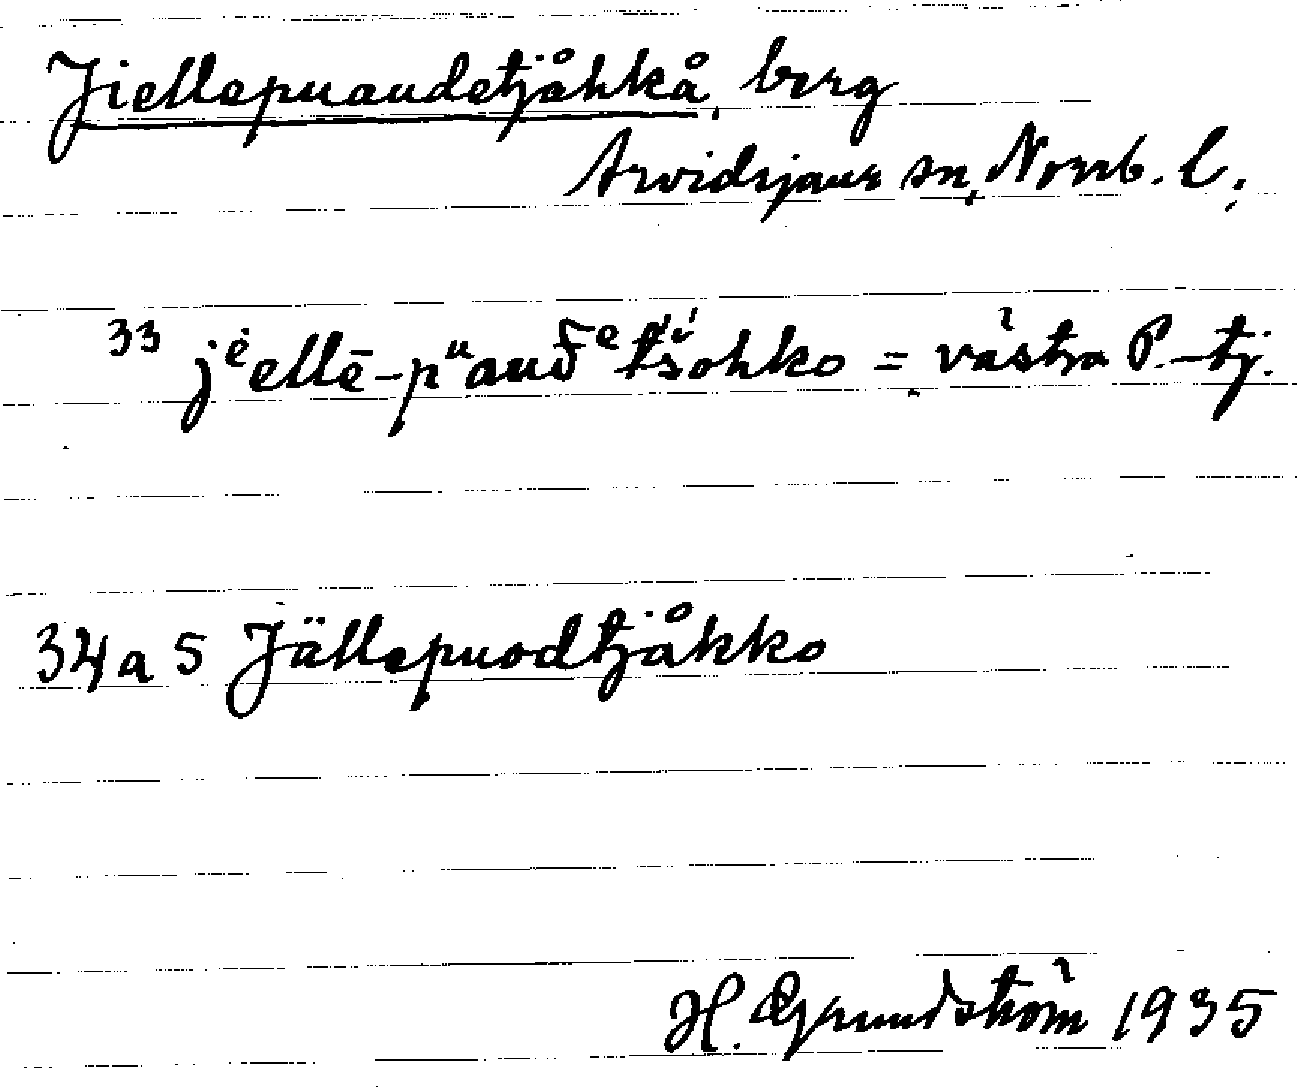 Jiellepuaudetjåhkå, berg
Arvidsjaur sn, Norrb. l.
33 jᵉellē-pᵘauδ̄ᵉtš́ohko = västra P.-tj.
34a5 Jällepuodtjåkko
H. Grundström 1935